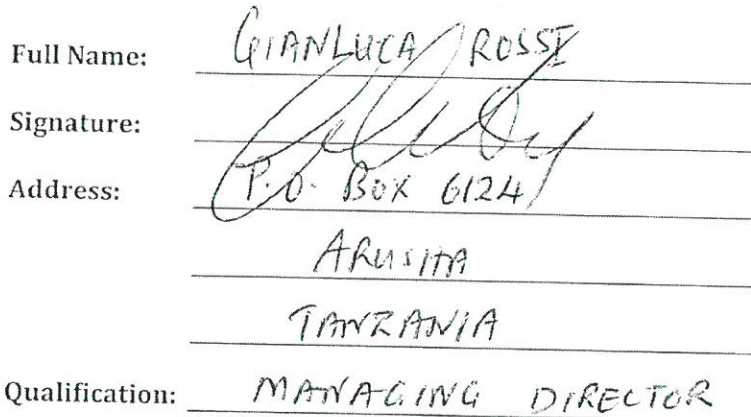 Full Name: GIANLUCA ROSSI
Signature:
Address: P.O. BOX 6124
ARUSHA
TANZANIA
Qualification: MANAGING DIRECTOR